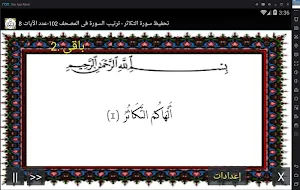 3:36
تحفيظ سورة التكاثر - ترتيب السورة فى المصحف 102-عدد الآيات 8
باقى :2
بِسْمِ اللَّهِ الرَّحْمَٰنِ الرَّحِيمِ
أَلْهَاكُمُ التَّكَاثُرُ (1)
|| >> إعدادات